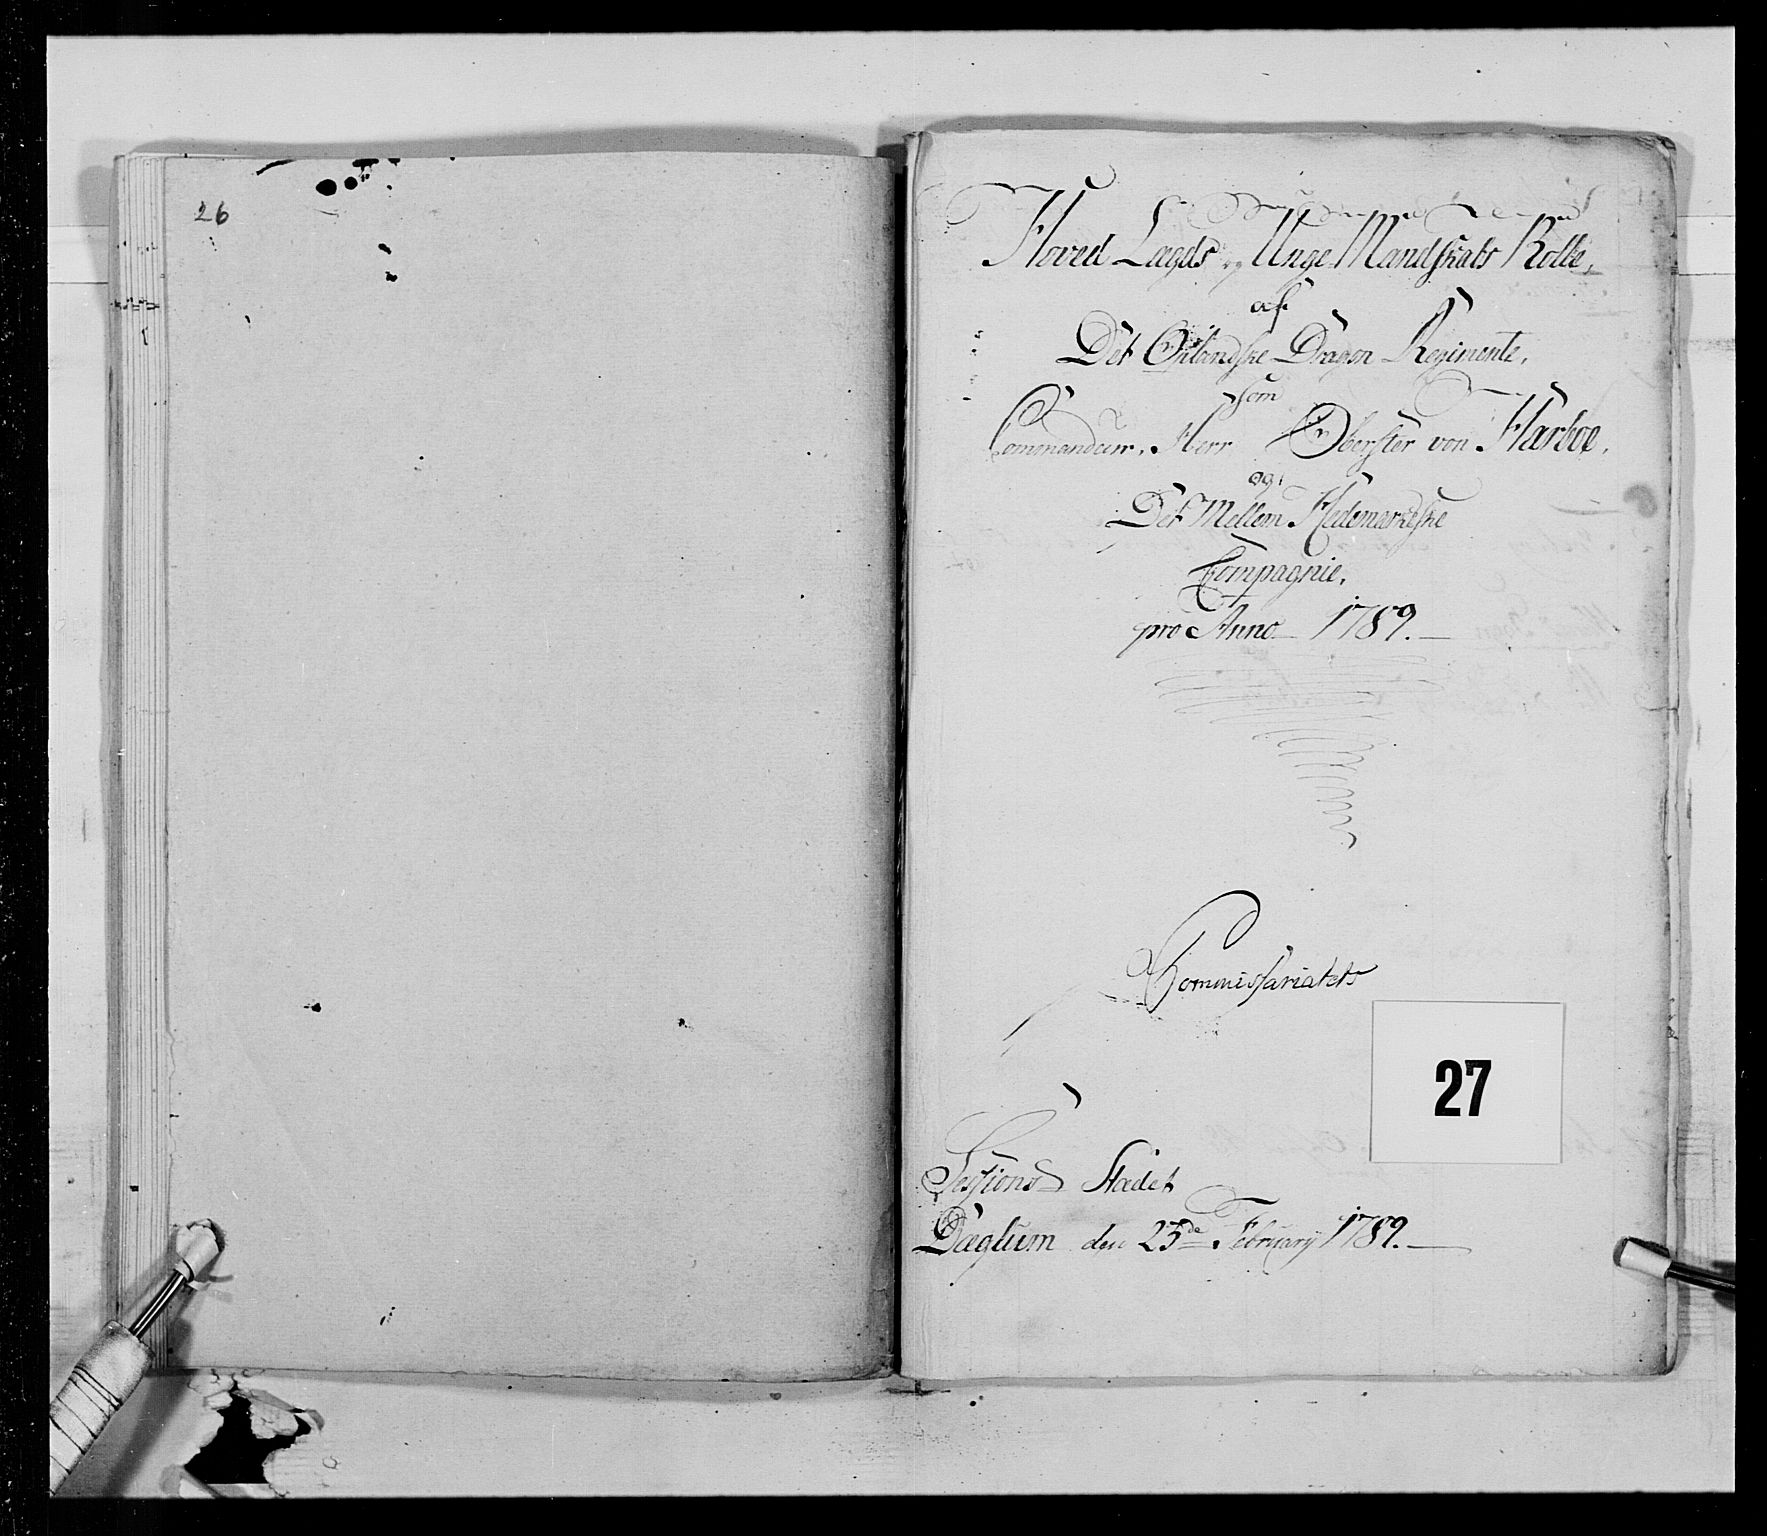 26
Hoved Lægds og Unge Mandskabs Rolle,
af
Det Oplandske Dragon Regimente,
som
Commandeur, Herr Oberster von Harboe,
og
Det Mellem Hedemarkeske
Compagnie,
pro Anno 1789.
Commissariatets
27
Sessions Stædet
Dæglum den 23de February 1789.